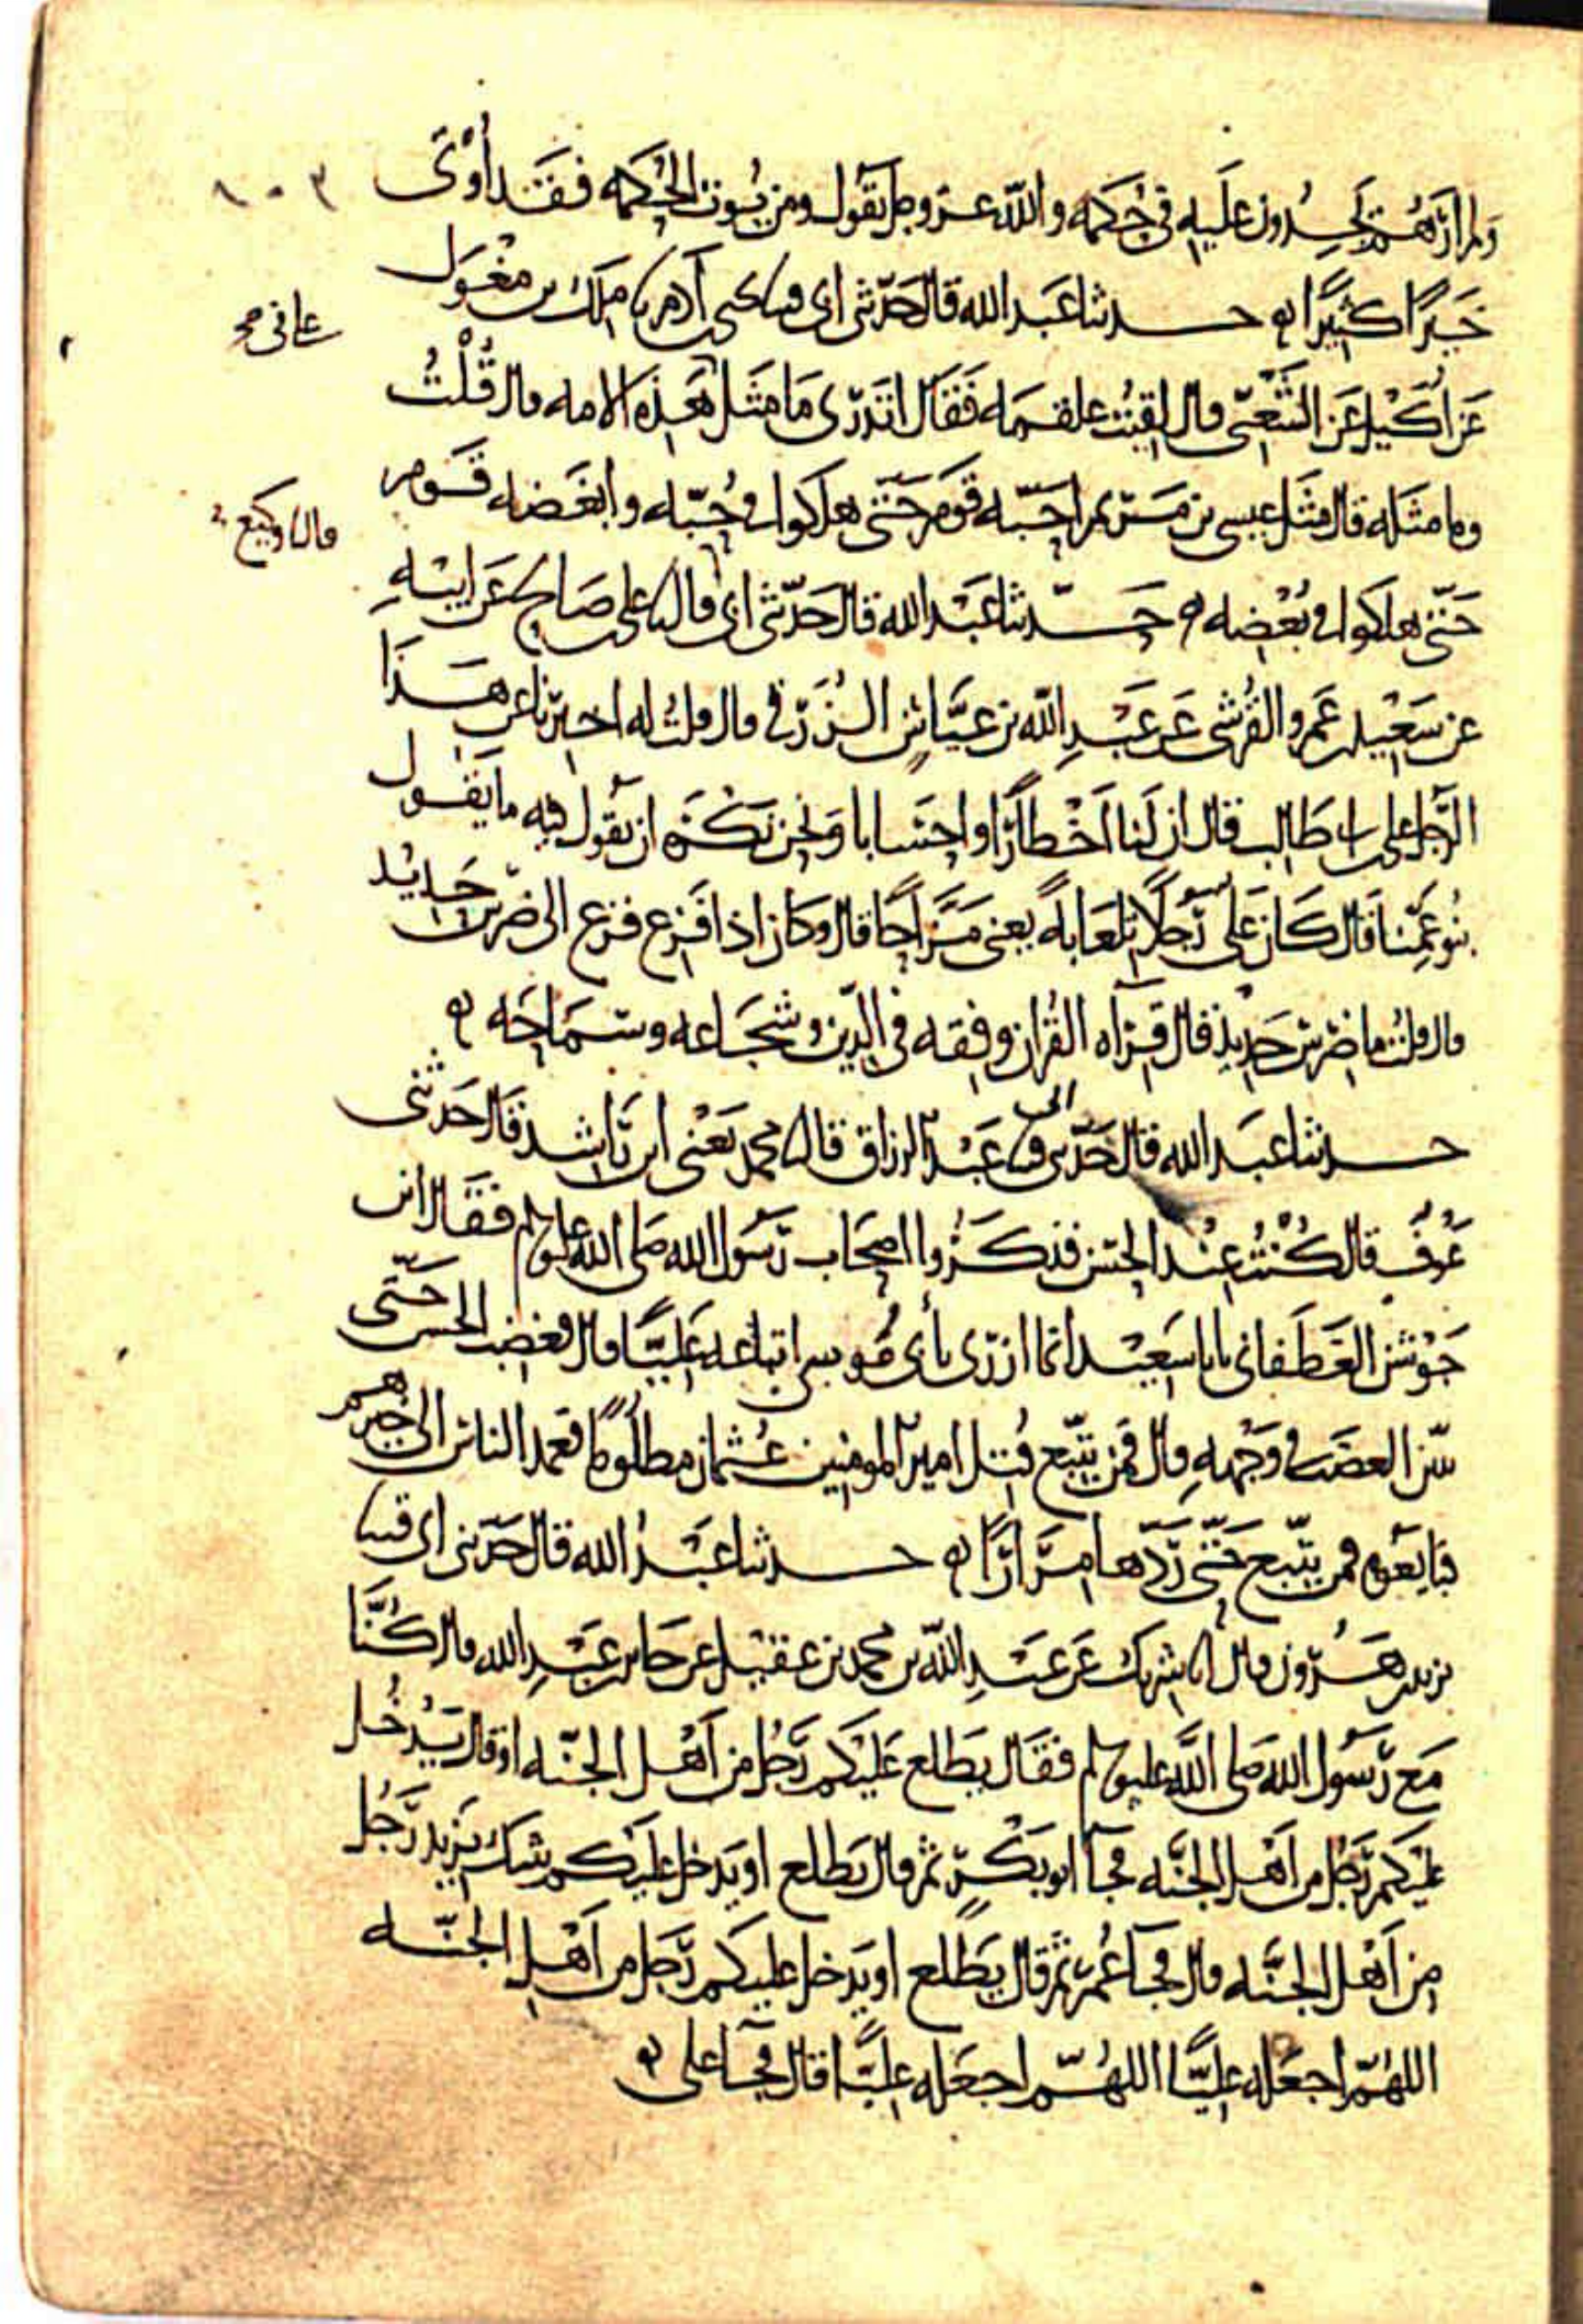 ولم أرهم يجدون عليه في حكمه والله عز وجل يقول ومن يؤت الحكمه فقد أوتى
خيرا كثيرا ه حدثنا عبد الله قال حدثني ابي قثنا يحيى بن ادم نا ملك بن مغول
عن أكيل عن الشعبي قال لقيت علقمه فقال اتدرى ما مثل علي في هذه الامه قال قلت
وما مثله قال مثل عيسى بن مريم احبه قوم حتى هلكوا في حبه وابغضه قوم
حتى هلكوا في بغضه ه حدثنا عبد الله قال حدثني ابي قال نا وكيع نا علي بن صالح عن ابيه
عن سعيد بن عمرو القرشي عن عبد الله بن عياش الزرقي قال قلت له اخبرنا عن هذا
الرجل علي بن ابي طالب قال ان لنا اخطارا واحسابا ونحن نكره ان نقول فيه ما يقول
بنو عمنا قال كان علي رجلا تلعابه يعني مزاحا قال وكان اذا فزع فزع الى ضرس حديد
قال قلت ما ضرس حديد قال قراه القران وفقه في الدين وشجاعه وسماحه ه
حدثنا عبد الله قال حدثني ابي قثنا عبد الرزاق قال نا محمد يعني ابن راشد قال حدثني
عوف قال كنت عند الحسن فذكروا اصحاب رسول الله صلى الله عليه وسلم فقال ابن
جوشن الغطفاني يابا سعيد انما ازرى بأبي موسى اتباعه عليا قال فغضب الحسن حتى
تبين الغضب في وجهه قال فمن يتبع قتل امير المومنين عثمان مظلوما فعمد الناس الى خيرهم
فبايعوه فمن يتبع حتى رددها مرارا ه حدثنا عبد الله قال حدثني ابي قثنا
يزيد بن هرون قال انا شريك عن عبد الله بن محمد بن عقيل عن جابر بن عبد الله قال كنا
مع رسول الله صلى الله عليه وسلم فقال يطلع عليكم رجل من أهل الجنه او قال يدخل
عليكم رجل من اهل الجنه فجآ ابو بكر ثم قال يطلع او يدخل عليكم شك يزيد رجل
من أهل الجنه قال فجآ عمر ثم قال يطلع او يدخل عليكم رجل من أهل الجنه
اللهم اجعله عليا اللهم اجعله عليا قال فجآ علي ه
علي في صح
قال نا وكيع